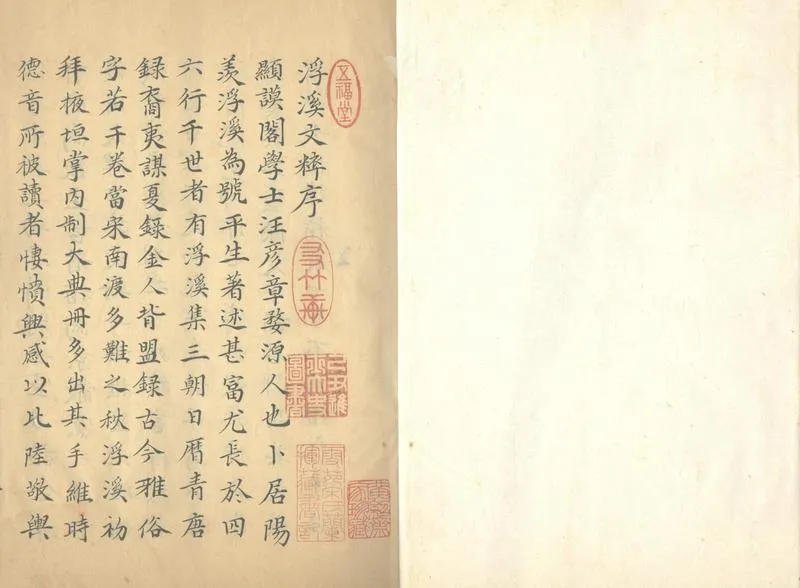 浮溪文粹序
顯謨閣學士汪彦章婺源人也卜居陽
羨浮溪為號平生著述甚富尤長於四
六行千世者有浮溪集三朝日曆青唐
録裔夷謀夏録金人背盟録古今雅俗
字若干卷當宋南渡多難之秋浮溪初
拜掖垣掌內制大典冊多出其手維時
德音所被讀者悽憤興感以比陸敬輿
五福堂